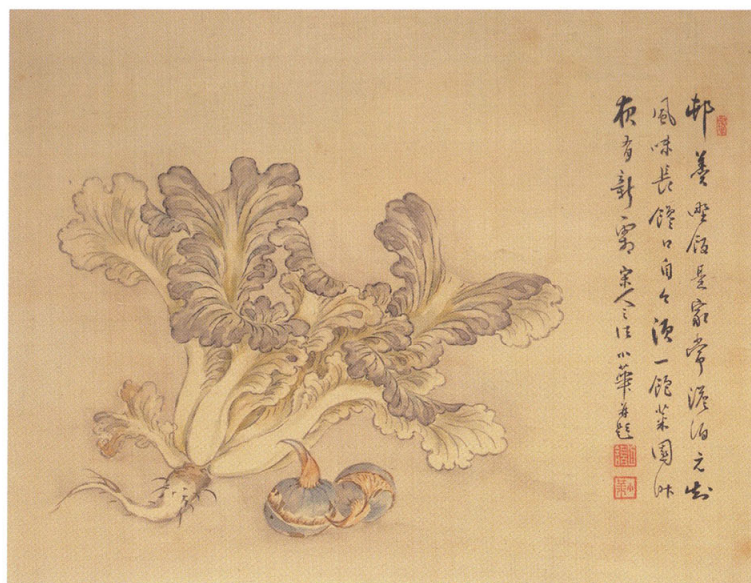 邨羹野飯是家常澹泊元知
風味長饞口自今須一飽菜園昨
夜有新霜 宋人之法 小華并題